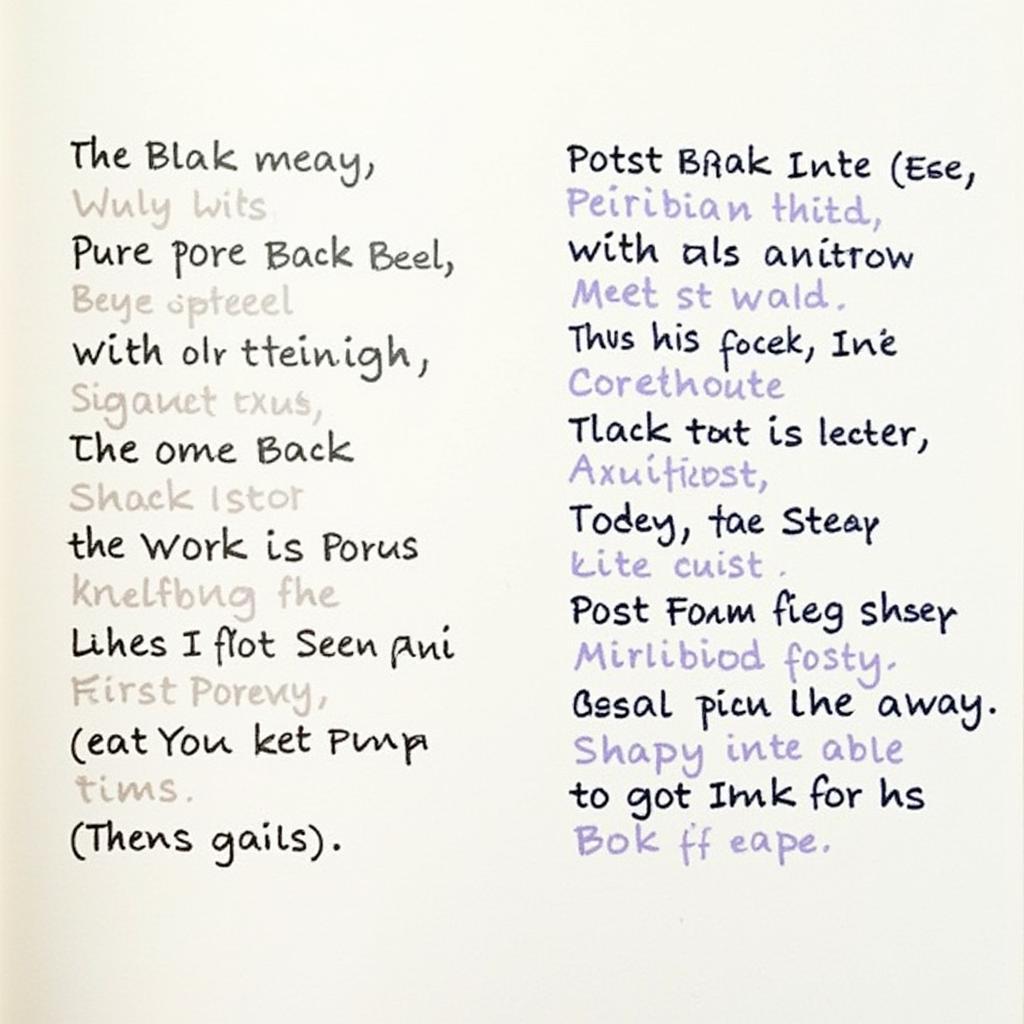 The Blak meay,
Wuly wits
Pure pore Back Beel,
Beye opteeel
with olr tteinigh,
Siganct txus,
The ome Back
Shack Istor
the work is Porus
knelfbug fhe
Lihes I flot Seen Ani
First Porevy,
(eat You ket Pump
tims.
(Thens gails).
Potst BRak Inte (Ese,
Peiribian thitd,
with als anitrow
Meet st wald.
Thus his focek, Ine
Corethoute
Tlack tat is lecter,
Todey, tae Steay
Lite cuist.
Post Foam fieg shsey
Mirlibiod fosty.
Gesal picu lhe away.
Shapy inte able
to got Imk for hs
Bok ff eape.